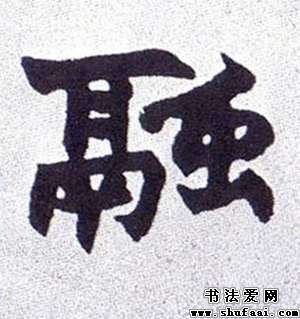 融
书法爱网
www.shufaai.com